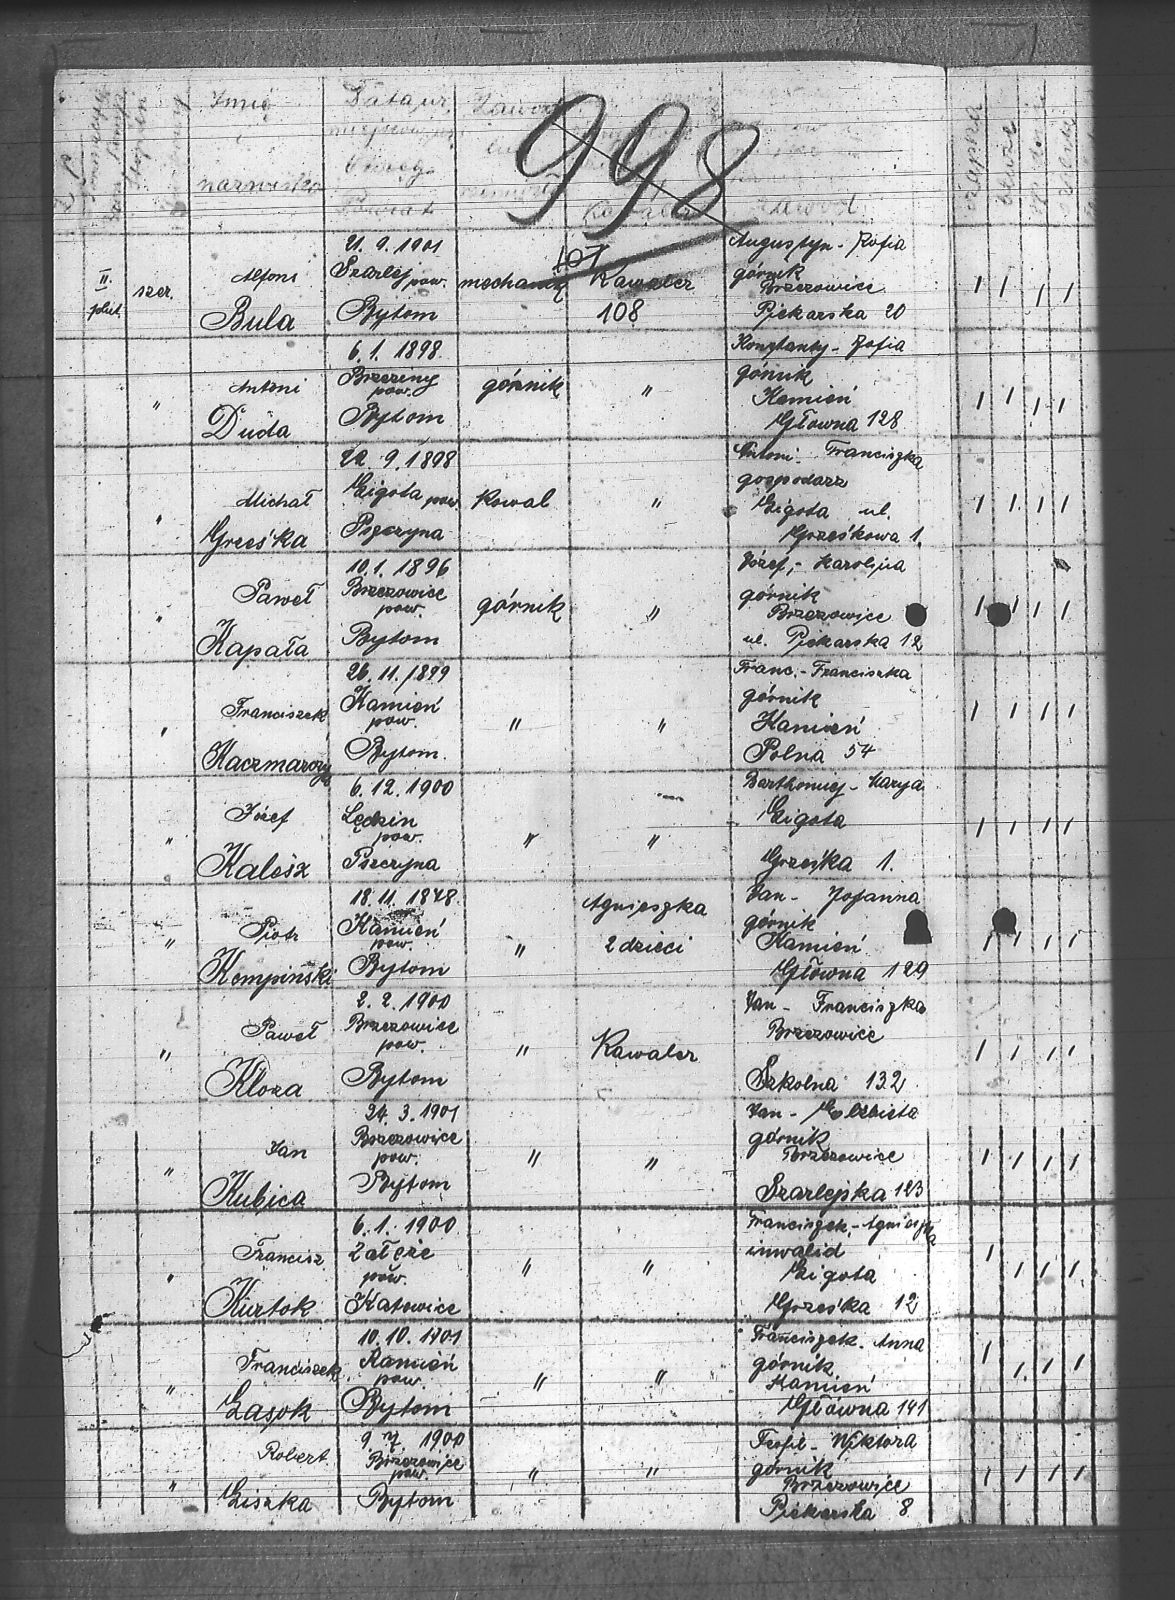 Imię
i
nazwisko
Data ur.
Powiat
Zawód
Kawaler
Zawód
998
107
108
czapka
bluze
II. plut.
szer.
Alfons
Bula
21. 9. 1901
Szarlej pow.
Bytom
mechanik
Kawaler
Augustyn - Zofia
górnik
Brzezowice
Piekarska 20
"
Antoni
Duda
6. 1. 1898.
Brzeziny
pow.
Bytom
górnik
"
Konstanty - Zofia
górnik
Kamień
Główna 128
"
Michał
Grześka
22. 9. 1898
Gigota pow.
Pszczyna
Kowal
"
Antoni - Franciszka
gospodarz
Gigota ul.
Grześkowa 1.
"
Paweł
Kapała
10. 1. 1896
Brzezowice
pow.
Bytom
górnik
"
Józef, - Karolina
górnik
Brzezowice
ul. Piekarska 12
"
Franciszek
Kaczmarczyk
26. 11. 1899
Kamień
pow.
Bytom.
"
"
Franc. - Franciszka
górnik
Kamień
Polna 54
"
Józef
Kalesz
6. 12. 1900
Lędzin
pow.
Pszczyna
"
"
Bartłomiej - Marya
Gigota
Grześka 1.
"
Piotr
Kempiński
18. 11.
Kamień
pow.
Bytom
"
Agnieszka
2 dzieci
Jan - Johanna
górnik
Kamień
Główna 129
"
Paweł
Kloza
2. 2. 1900
Brzezowice
pow.
Bytom
"
Kawaler
Jan - Franciszka
Brzezowice
Szkolna 132
"
Jan
Kubica
24. 3. 1901
Brzezowice
pow.
Bytom
"
"
Jan - Elżbieta
górnik
Brzezowice
Szarlejska 123
"
Francisz
Kurtok
6. 1. 1900
Załęże
pow.
Katowice
"
"
Franciszek - Agnieszka
inwalid
Gigota
Grześka 12
"
Franciszek
Łasok
10. 10. 1901
Kamień
pow.
Bytom
"
"
Franciszek. Anna
górnik
Kamień
Główna 141
"
Robert
Liszka
9. 7. 1900
Brzezowice
pow.
Bytom
"
"
Teofil - Wiktora
górnik
Brzezowice
Piekarska 8